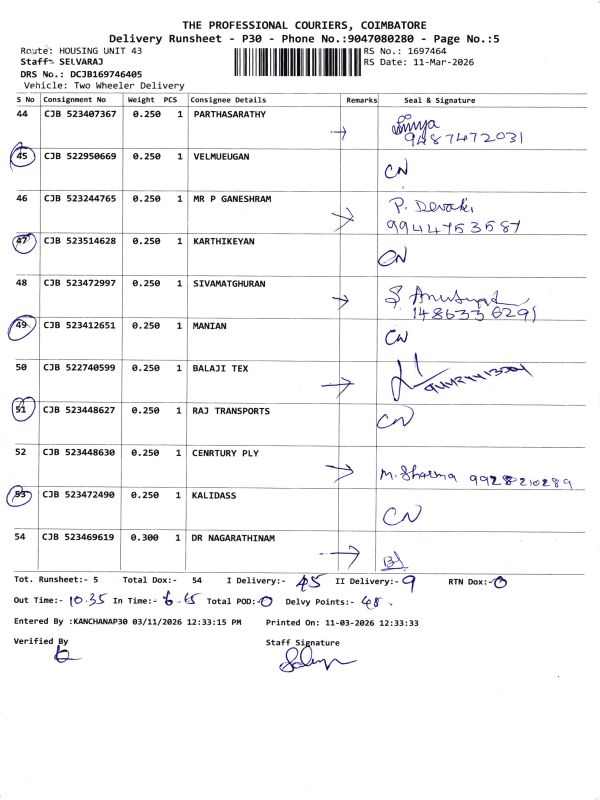 THE PROFESSIONAL COURIERS, COIMBATORE
Delivery Runsheet - P30 - Phone No.:9047080280 - Page No.:5
Route: HOUSING UNIT 43 RS No.: 1697464
Staff: SELVARAJ RS Date: 11-Mar-2026
DRS No.: DCJB169746405
Vehicle: Two Wheeler Delivery
S No Consignment No Weight PCS Consignee Details Remarks Seal & Signature
44 CJB 523407367 0.250 1 PARTHASARATHY
9487472031
45 CJB 522950669 0.250 1 VELMUEUGAN CN
46 CJB 523244765 0.250 1 MR P GANESHRAM P. Devaki
9944753587
47 CJB 523514628 0.250 1 KARTHIKEYAN CN
48 CJB 523472997 0.250 1 SIVAMATGHURAN
1486336291
49 CJB 523412651 0.250 1 MANIAN CN
50 CJB 522740599 0.250 1 BALAJI TEX
51 CJB 523448627 0.250 1 RAJ TRANSPORTS CN
52 CJB 523448630 0.250 1 CENRTURY PLY M. Sharma 9928210289
53 CJB 523472490 0.250 1 KALIDASS CN
54 CJB 523469619 0.300 1 DR NAGARATHINAM
Tot. Runsheet:- 5 Total Dox:- 54 I Delivery:- 45 II Delivery:- 9 RTN Dox:- 0
Out Time:- 10.35 In Time:- 6.45 Total POD:- 0 Delvy Points:- 48.
Entered By :KANCHANAP30 03/11/2026 12:33:15 PM Printed On: 11-03-2026 12:33:33
Verified By Staff Signature